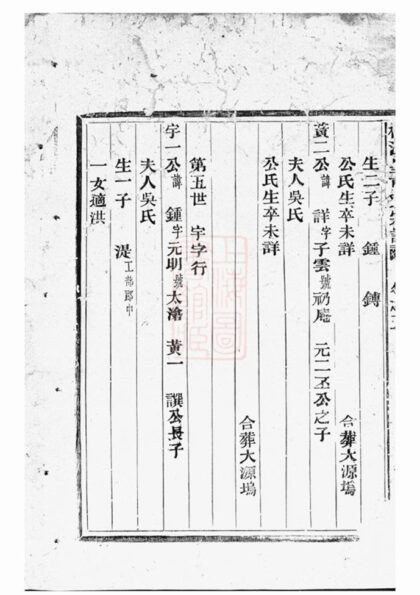 生二子 鍾 鏄
公氏生卒未詳 合葬大源塢
黃二公諱詳字子雲號礽庵 元二丞公之子
夫人吳氏
公氏生卒未詳 合葬大源塢
第五世 宇字行
宇一公諱鍾字元明號太滄 黃一譔公長子
夫人吳氏
生一子 湜工部郎中
一女適洪